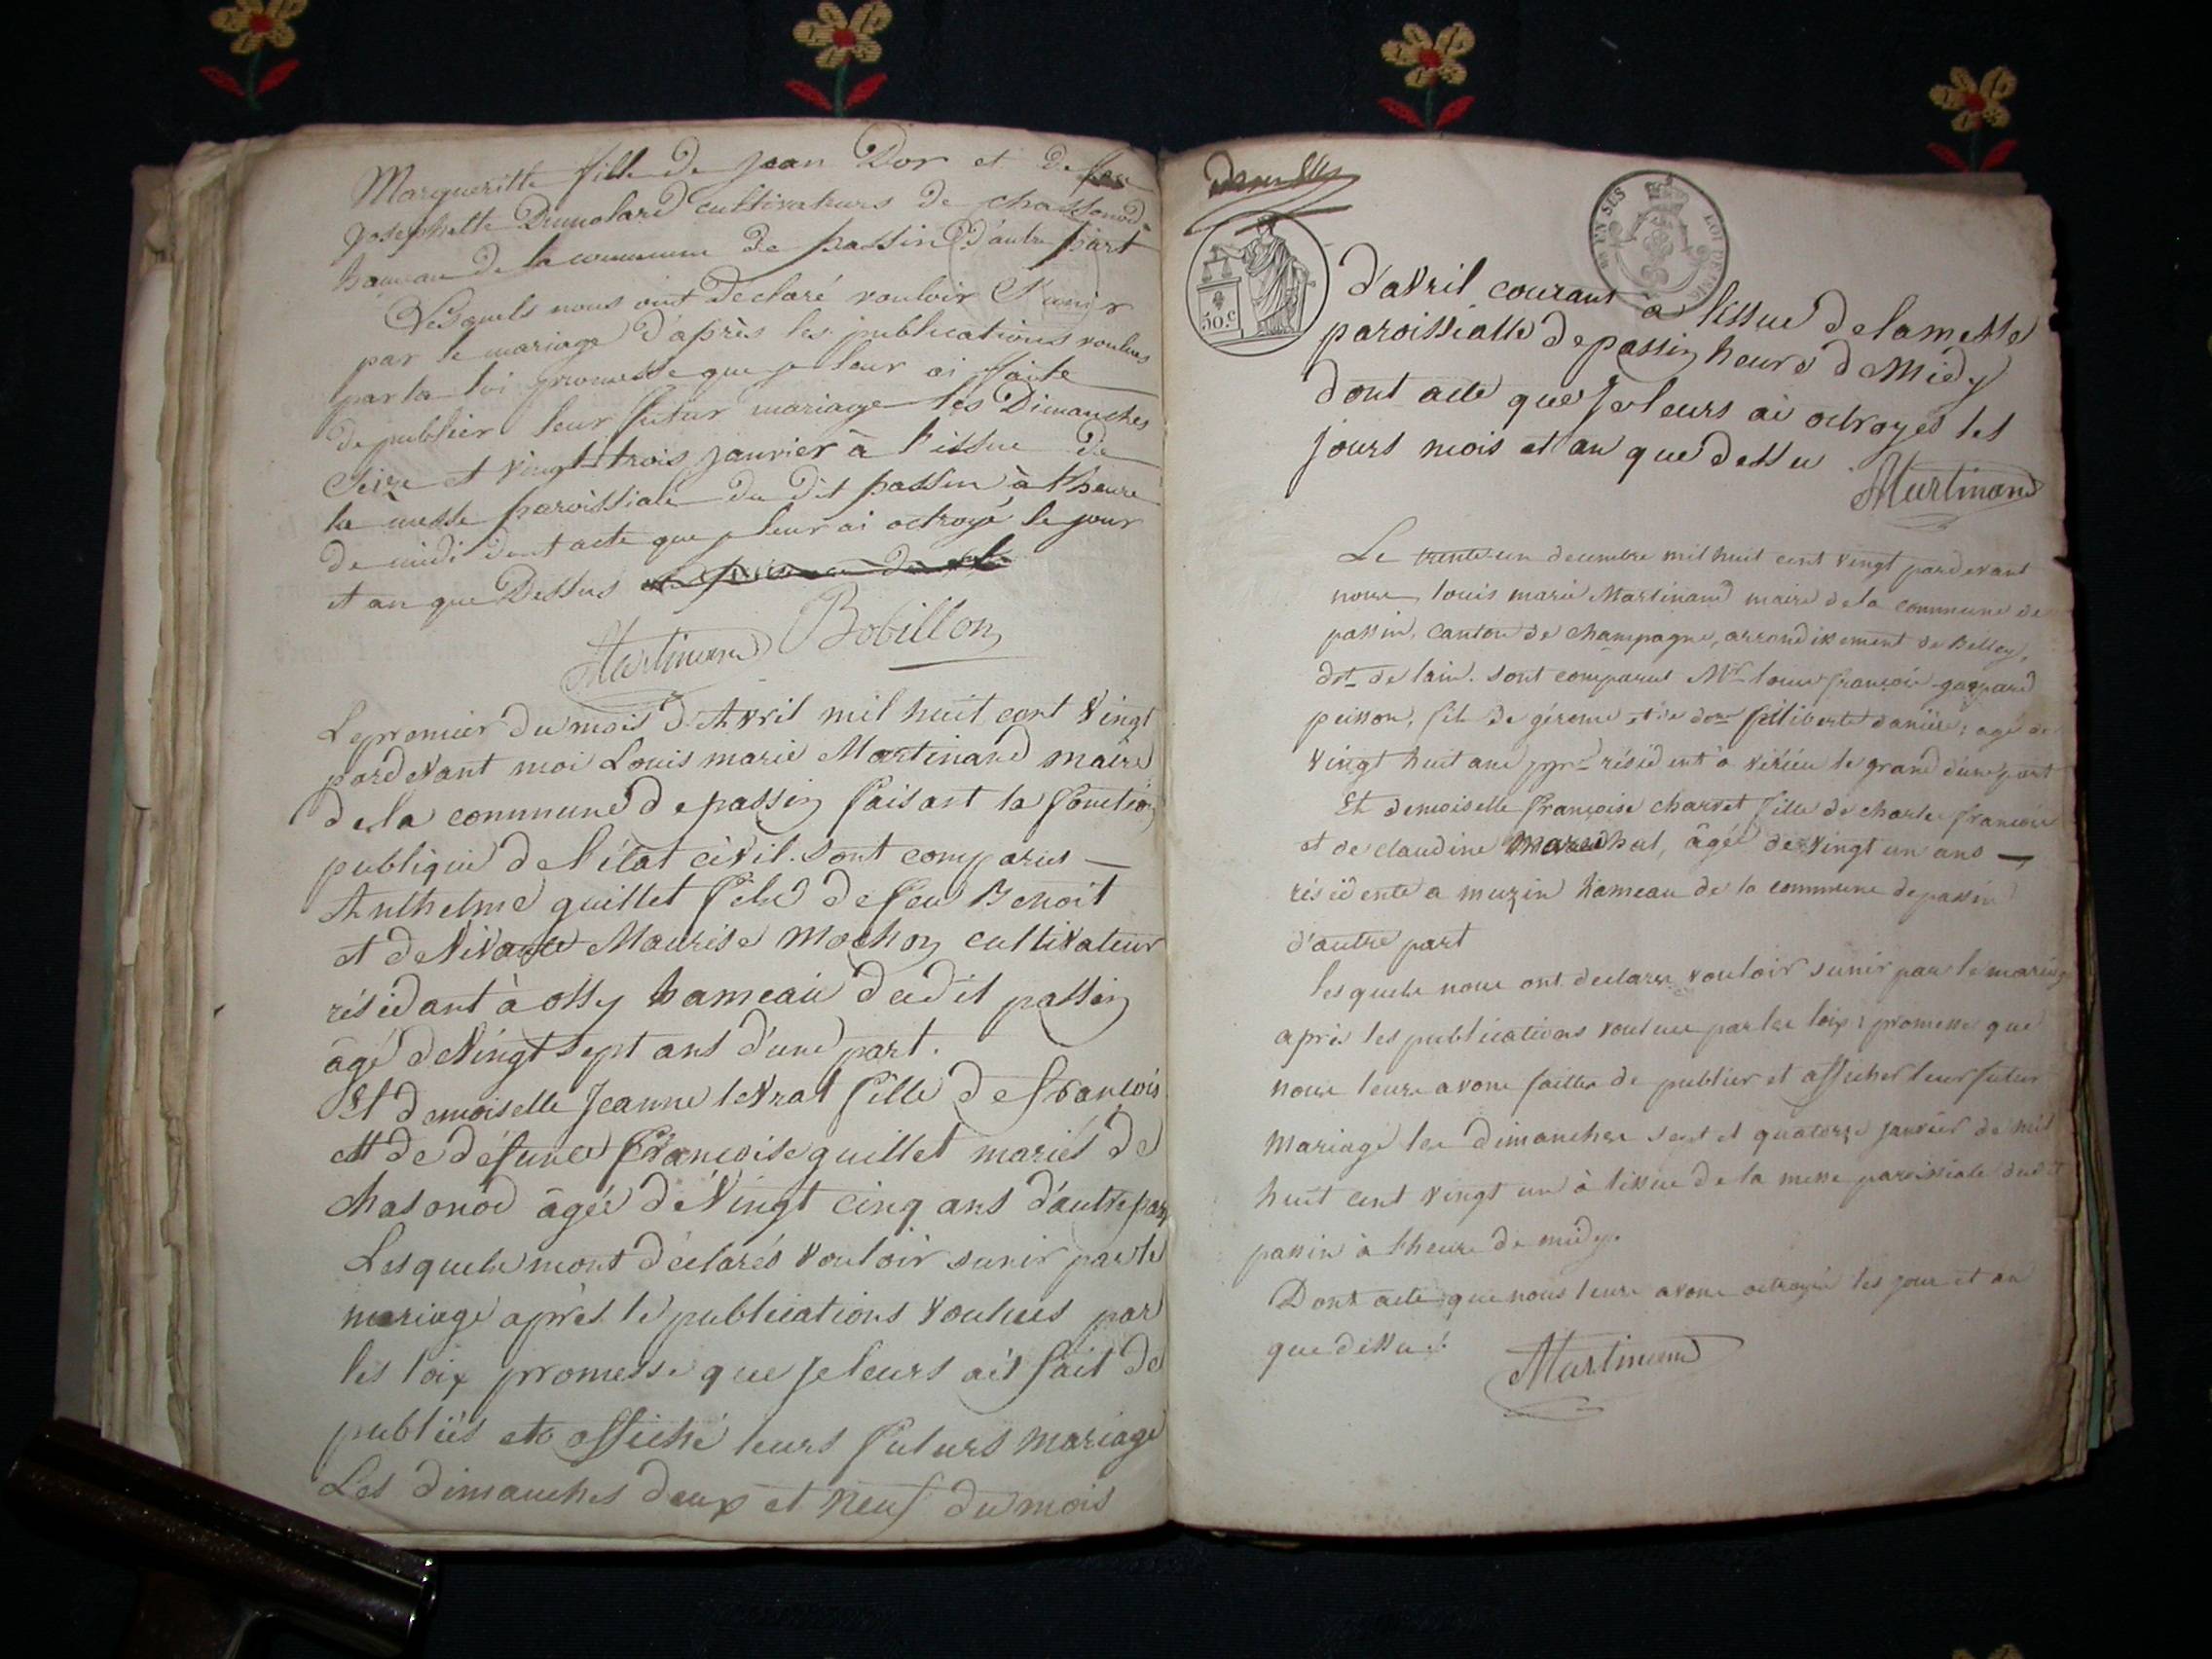 Margueritte fille de Jean Dor et de feu
Josephette Drumolard cultivateurs de chassonod
hameau de la commune de passin d'autre part
Lesquels nous ont declaré vouloir s'unir
par le mariage d'après les publications voulues
par la loi promesse que je leur ai faite
de publier leur futur mariage les Dimanches
seize et vingt trois janvier à l'issue de
la messe paroissiale du dit passin à l'heure
de midi dont acte que je leur ai octroyé le jour
et an que Dessus
Martinand Bobillon
Le premier du mois d'Avril mil huit cent Vingt
pardevant moi Louis marie Martinand maire
de la commune de passin faisant la fonction
publique de l'état civil. sont comparus —
Anthelme guillet fils de feu Benoit
et de vivante Maurise Mochon cultivateur
résidant à ossy hameau dudit passin
âgé de Vingt sept ans d'une part.
Et demoiselle Jeanne levrat fille de francois
et de défunte francoise guillet mariés de
chasonod âgée de Vingt cinq ans d'autre part
Lesquels mont déclarés vouloir sunir par le
mariage après le publications voulues par
les loix promesse que je leurs ait fait de
publiés et affiché leurs futurs mariage
Les dimanches deux et neuf du mois
50.c
EN SUS
d'avril courant à lissue de la messe
paroissialle de passin heure de Midy
dont acte que je leurs ai octroyés les
jours mois et an que dessu
Martinand
Le trente un decembre mil huit cent vingt pardevant
nous louis marie Martinand maire de la commune de
passin, canton de champagne, arrondissement de Belley,
dt de lain. sont comparus Mr louis françois gaspard
peisson, fils de gérome et de dme filiberte daniere, agé de
vingt huit ans ppre résident à virieu le grand d'une part
Et demoiselle françoise charvet fille de charles francois
et de claudine Marechal, âgée de vingt un ans —
résidente a muzin hameau de la commune de passin
d'autre part
lesquels nous ont declarés vouloir sunir par le mariage
après les publications voulues par les loix; promesse que
nous leurs avons faittes de publier et afficher leur futur
mariage les dimanches sept et quatorze janvier de mil
huit cent vingt un à lissue de la messe paroissiale dudit
passin à l'heure de midy.
Dont acte que nous leurs avons octroyé les jour et an
que dessus.
Martinand